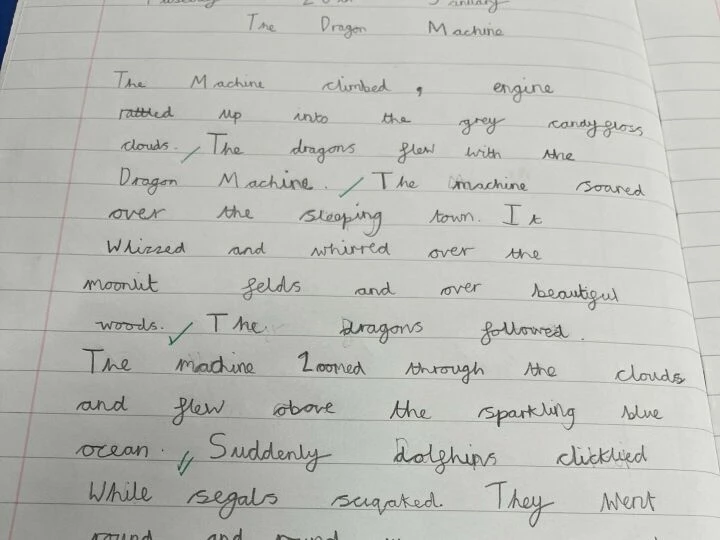 Tuesday January
The Dragon Machine
The Machine climbed , engine
rattled up into the grey candyfloss
clouds. The dragons flew with the
Dragon Machine. The machine soared
over the sleeping town. It
Whizzed and whirred over the
moonlit felds and over beautiful
woods. The dragons followed.
The machine Zoomed through the clouds
and flew above the sparkling blue
ocean. Suddenly dolphins
While segals They Went
round and round